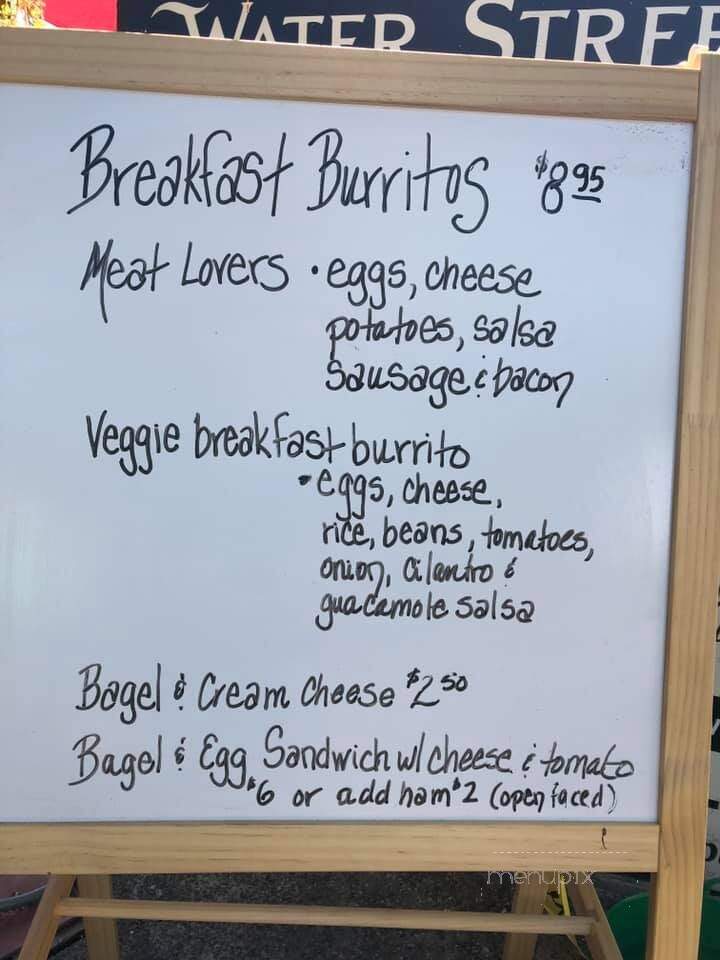 WATER STREE
Breakfast Burritos $8.95
Meat Lovers • eggs, cheese
potatoes, salsa
sausage & bacon
Veggie breakfast burrito
• eggs, cheese,
rice, beans, tomatoes,
onion, cilantro &
guacamole salsa
Bagel & Cream Cheese $2.50
Bagel & Egg Sandwich w/ cheese & tomato
$6 or add ham $2 (open faced)
menupix